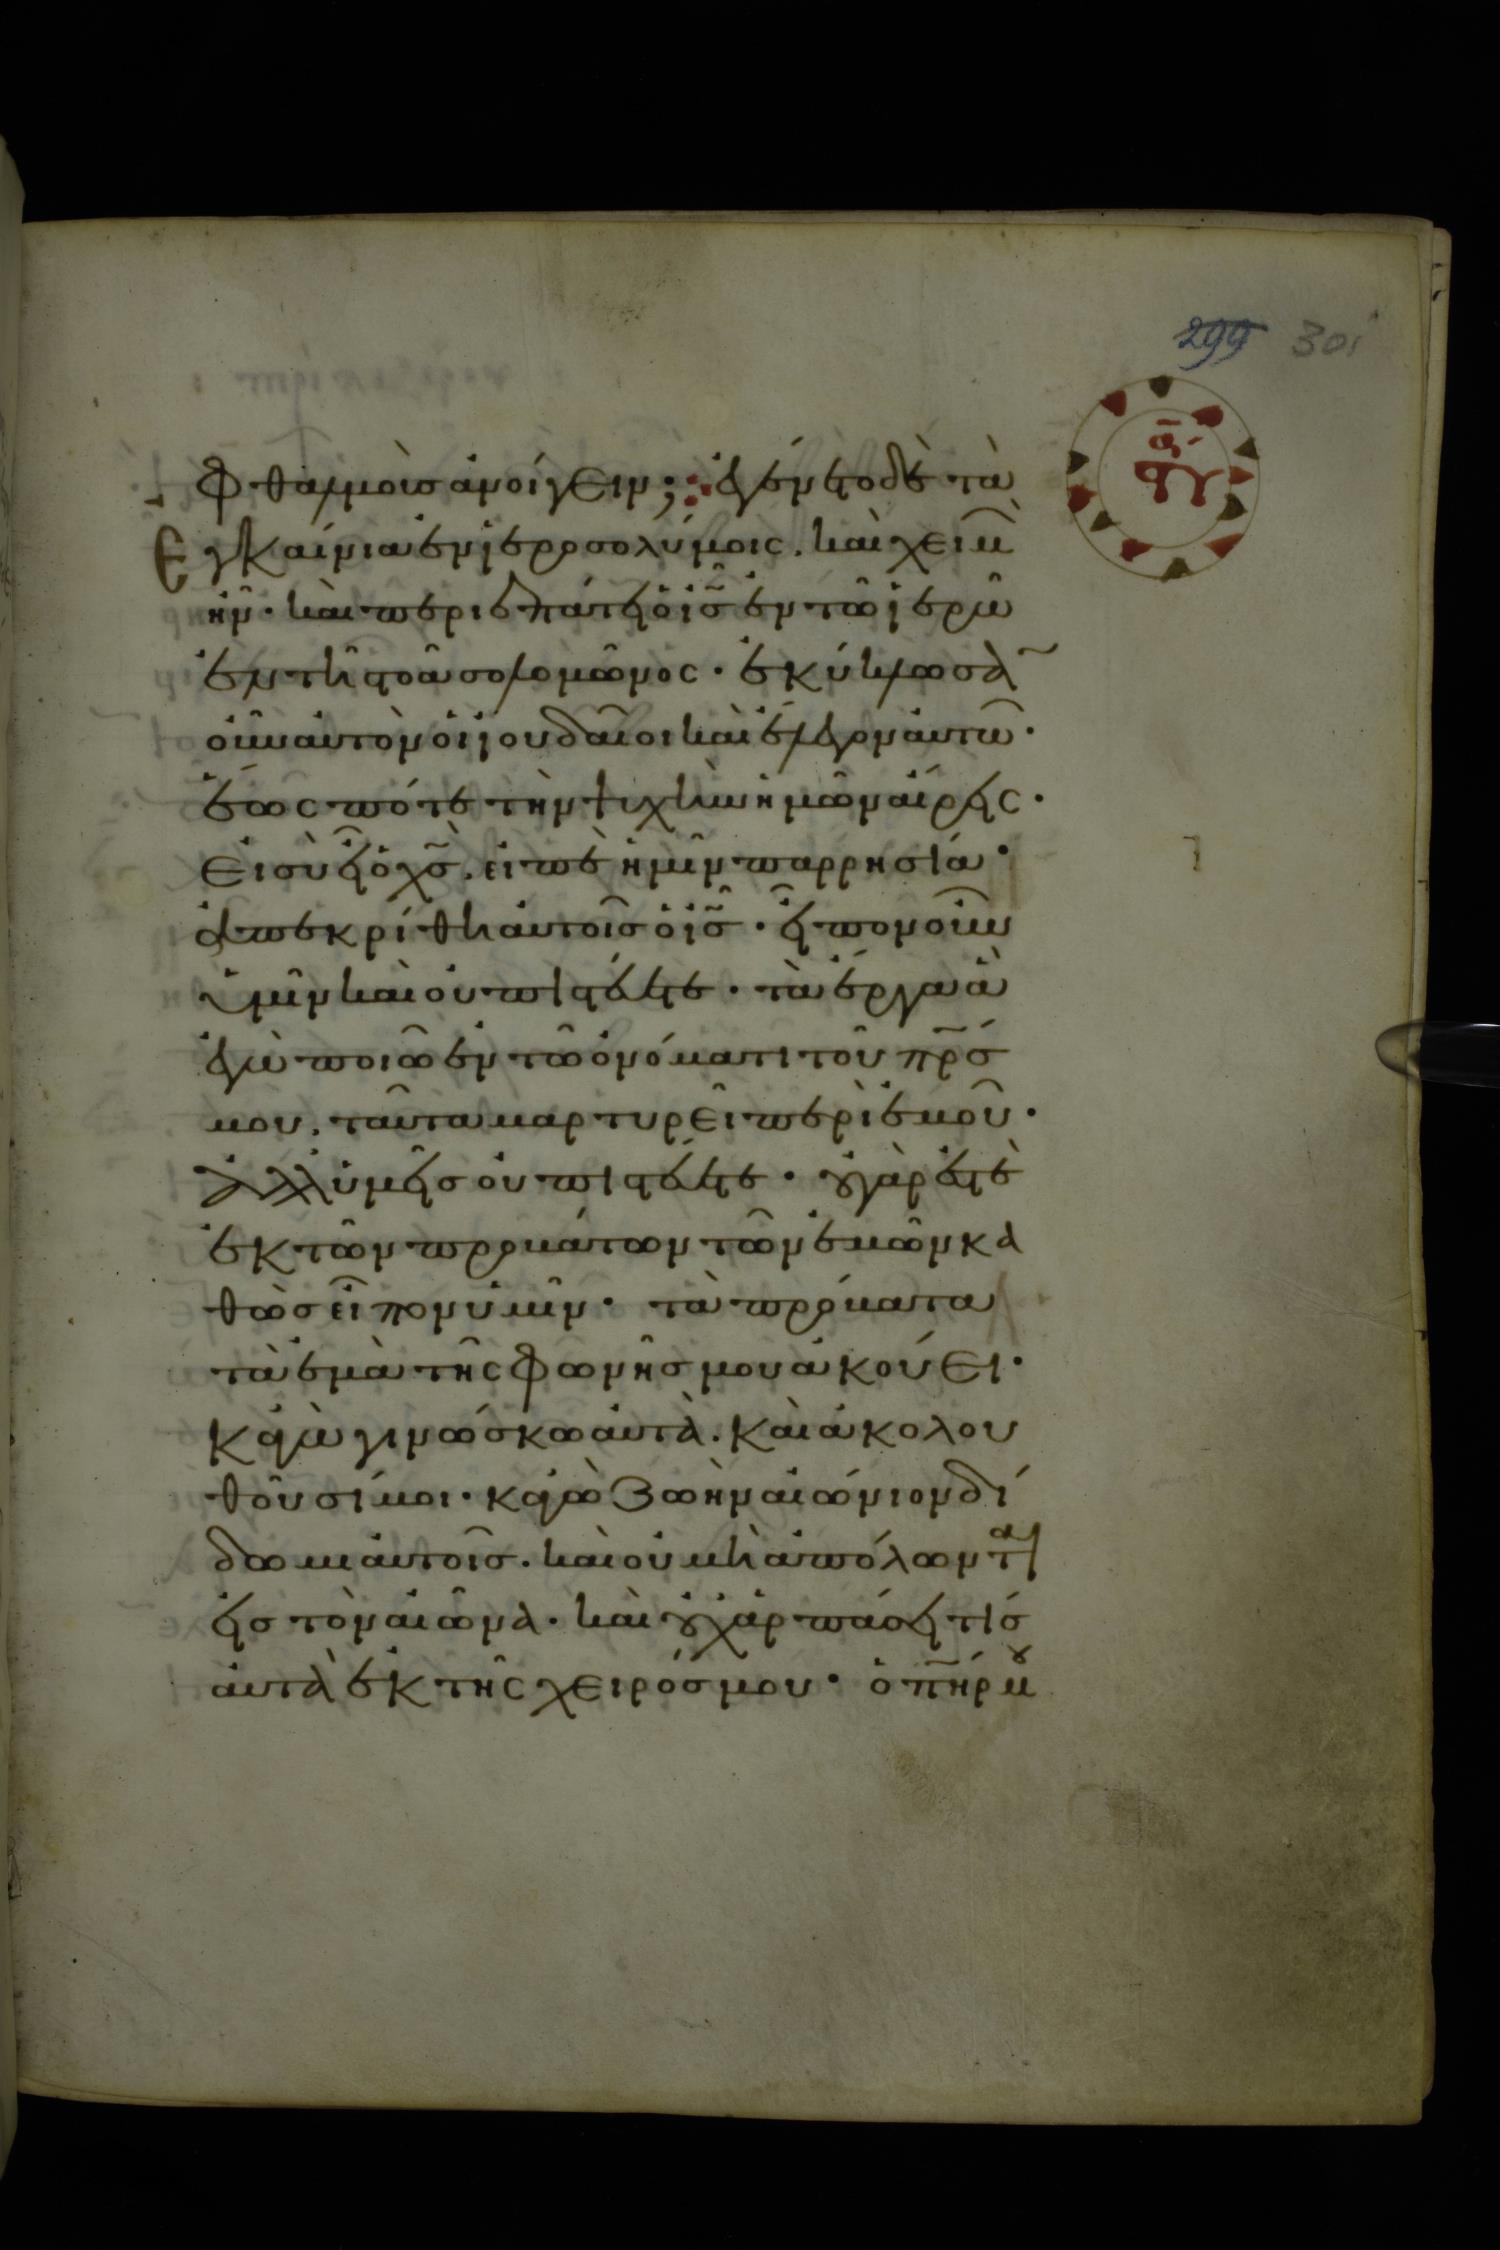 299 301
φθαλμοὺς ἀνοίγειν; ἐγένετο δὲ τὰ
ἐγκαίνια ἐν ἱεροσολύμοις. καὶ χειμὼ
ἦν· καὶ περιεπάτει ὁ ις̅ ἐν τῶ ἱερῶ
ἐν τῆ στοᾶ σολομῶνος· ἐκύκλωσα̅
οὖν αὐτὸν οἱ ἰουδαῖοι καὶ ἔλεγον αὐτῶ·
ἕως πότε τὴν ψυχὴν ἡμῶν αἴρεις·
εἰ σὺ εἶ ὁ χς̅. εἰπὲ ἡμῖν παρρησία·
ἀπεκρίθη αὐτοῖς ὁ ις̅· εἶπον οὖν
ὑμῖν καὶ οὐ πιστεύετε· τὰ ἔργα ἃ
ἐγὼ ποιῶ ἐν τῶ ὀνόματι τοῦ πρ̅ς
μου, ταῦτα μαρτυρεῖ περὶ ἐμοῦ·
ἀλλ' ὑμεῖς οὐ πιστεύετε· οὐ γὰρ ἐστὲ
ἐκ τῶν προβάτων τῶν ἐμῶν κα
θὼς εἶπον ὑμῖν· τὰ πρόβατα
τὰ ἐμὰ τῆς φωνῆς μου ἀκούει·
κἀγὼ γινώσκω αὐτὰ. καὶ ἀκολου
θοῦσί μοι· κἀγὼ ζωὴν αἰώνιον δί
δωμι αὐτοῖς. καὶ οὐ μὴ ἀπόλωνται
εἰς τὸν αἰῶνα· καὶ οὐχ ἁρπάσει τίς
αὐτὰ ἐκ τῆς χειρός μου· ὁ πη̅ρ μου